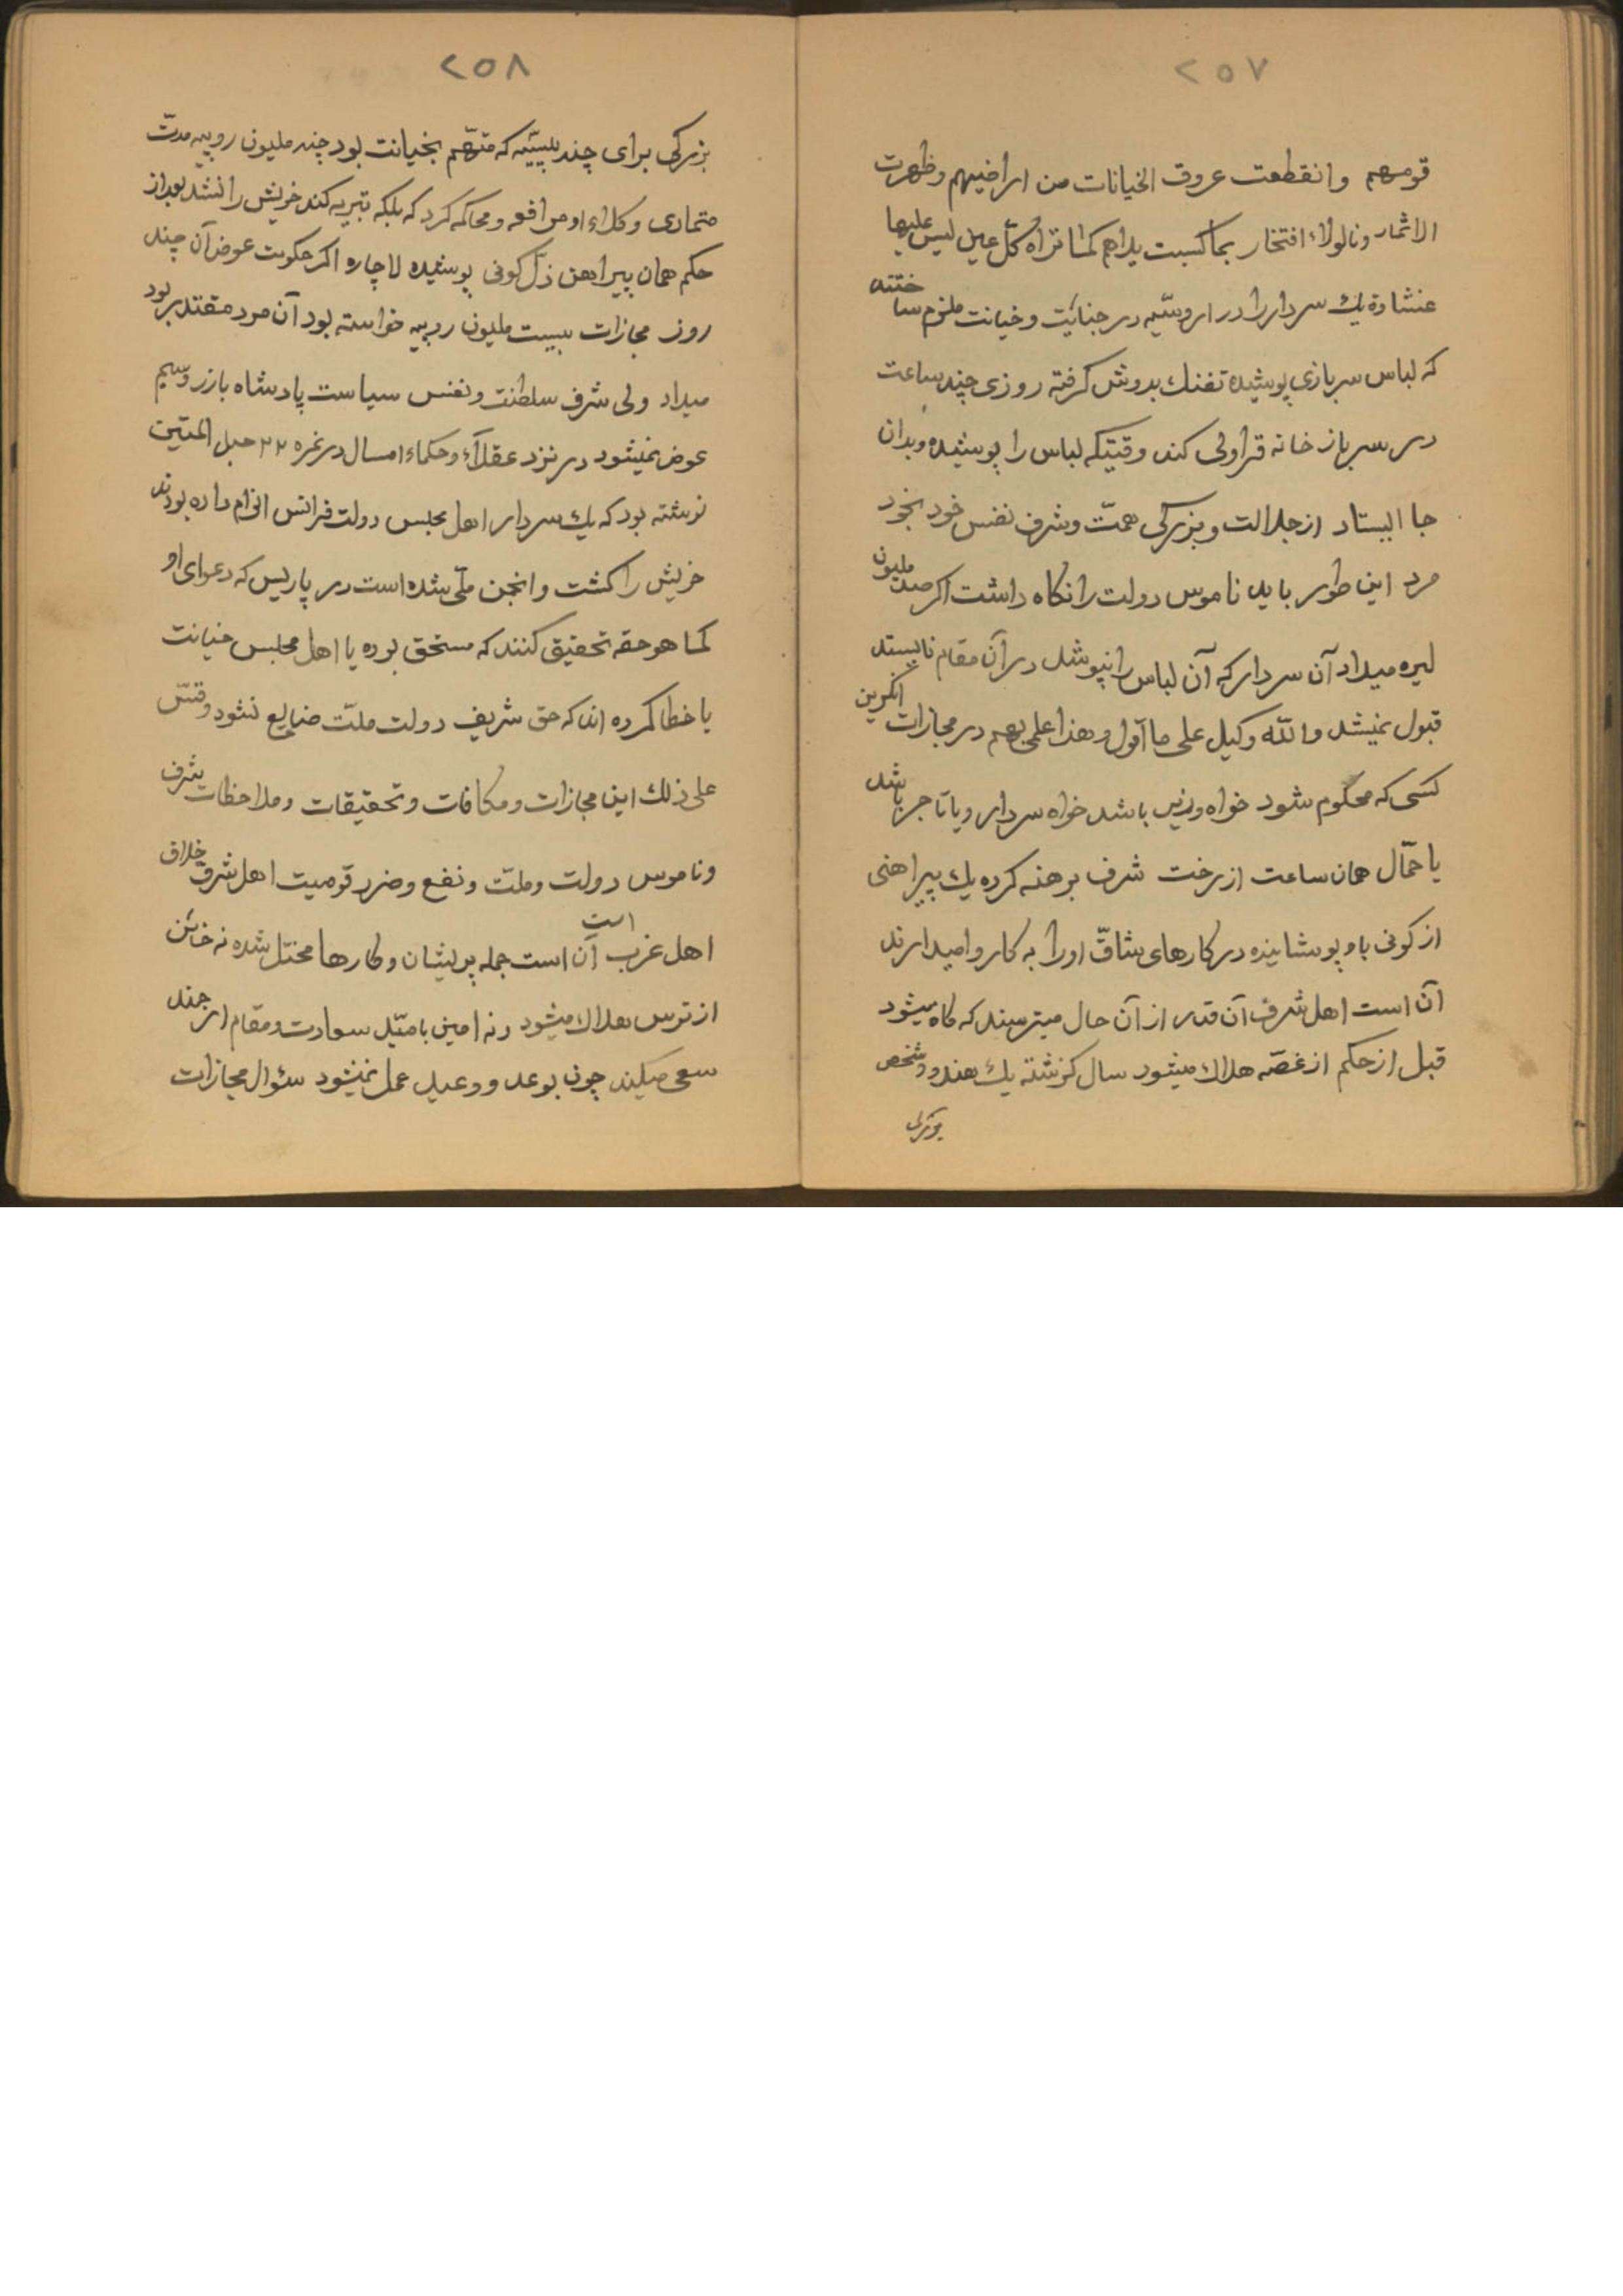 ۲۵۷
قومهم وانقطعت عروق الخیانات من اراضیهم وظهرت
الاثمار ونالولاء افتخار بما کسبت یداهم کما تراه کلّ عین لیس علیها
غشاوة یك سردار را در اروسیّه در جنایت و خیانت ملزم ساختند
که لباس سربازی پوشیده تفنك بدوش کرفته روزی چند ساعت
در سرباز خانه قراولی کند وقتیکه لباس را پوشیده وبدان
جا ایستاد از جلالت و بزرکی همّت وشرف نفس خود بخود
مرد این طور باید ناموس دولت را نکاه داشت اکر صد ملیون
لیره میداد آن سردار که آن لباس را نپوشد در آن مقام نایستد
قبول نمیشد والله وکیل علی ما اقول وهذا علمی بهم در مجازات انکریز
کسی که محکوم شود خواه وزیر باشد خواه سردار ویا تاجر باشد
یا حمّال همان ساعت از رخت شرف برهنه کرده یك پیراهنی
از کونی باو پوشانیده در کارهای شاقّ اورا به کار وامیدارند
آن است اهل شرف آن قدر از آن حال میترسند که کاه میشود
قبل از حکم از غصّه هلاك میشود سال کزشته یك هندو شخص
بزرکی
۲۵۸
بزرکی برای چند پیسّه که متّهم بخیانت بود چند ملیون روپیه مدّت
متمادی وکلاء او مرافعه ومحاکمه کرد که بلکه تبریه کند خویش را نشد بعد از
حکم همان پیراهن ذلّ کونی پوشیده لاچاره اکر حکومت عوض آن چند
روز مجازات بیست ملیون روپیه خواسته بود آن مرد مقتدر بود
میداد ولی شرف سلطنت ونفس سیاست پادشاه بازر وسیم
عوض نمیشود در نزد عقلاء وحکماء امسال در نمره ۲۲ حبل المتین
نوشته بود که یك سردار اهل مجلس دولت فرانس الزام داده بودند
خویش را کشت وانجمن ملّی شده است در پاریس که دعوای او
کما هو حقه تحقیق کنند که مستحق بوده یا اهل مجلس خیانت
یا خطا کرده اند که حق شریف دولت ملّت ضایع نشود وقس
علی ذلك این مجازات ومکافات وتحقیقات وملاحظات شرف
وناموس دولت وملّت ونفع وضرر قومیت اهل شرق خلاق
اهل غرب است آن است جمله پریشان وکارها مختل شده نه خائن
از ترس هلاك میشود ونه امین بامیّد سعادت ومقام ارجند
سعی میکند چون بوعد ووعید عمل نمیشود سئوال مجازات